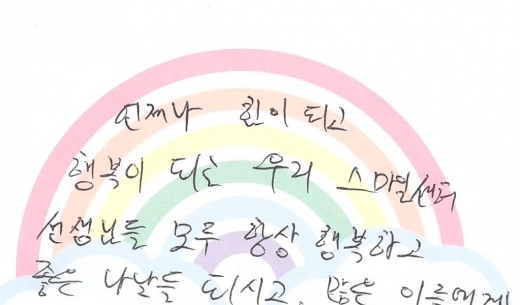 언제나 힘이 되고
행복이 되는 우리 스마일센터
선생님들 모두 항상 행복하고
좋은 나날들 되시고, 많은 이들에게